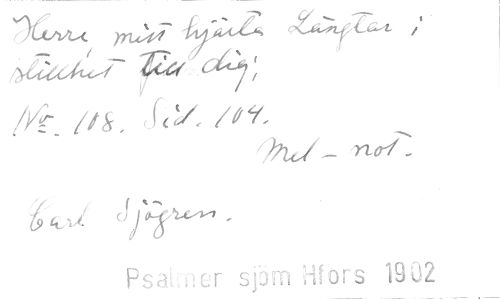 Herre, mitt hjärta Längtar i
stillhet till dig;
No. 108. Sid. 104.
Mel - not.
Carl Sjögren.
Psalmer sjöm Hfors 1902